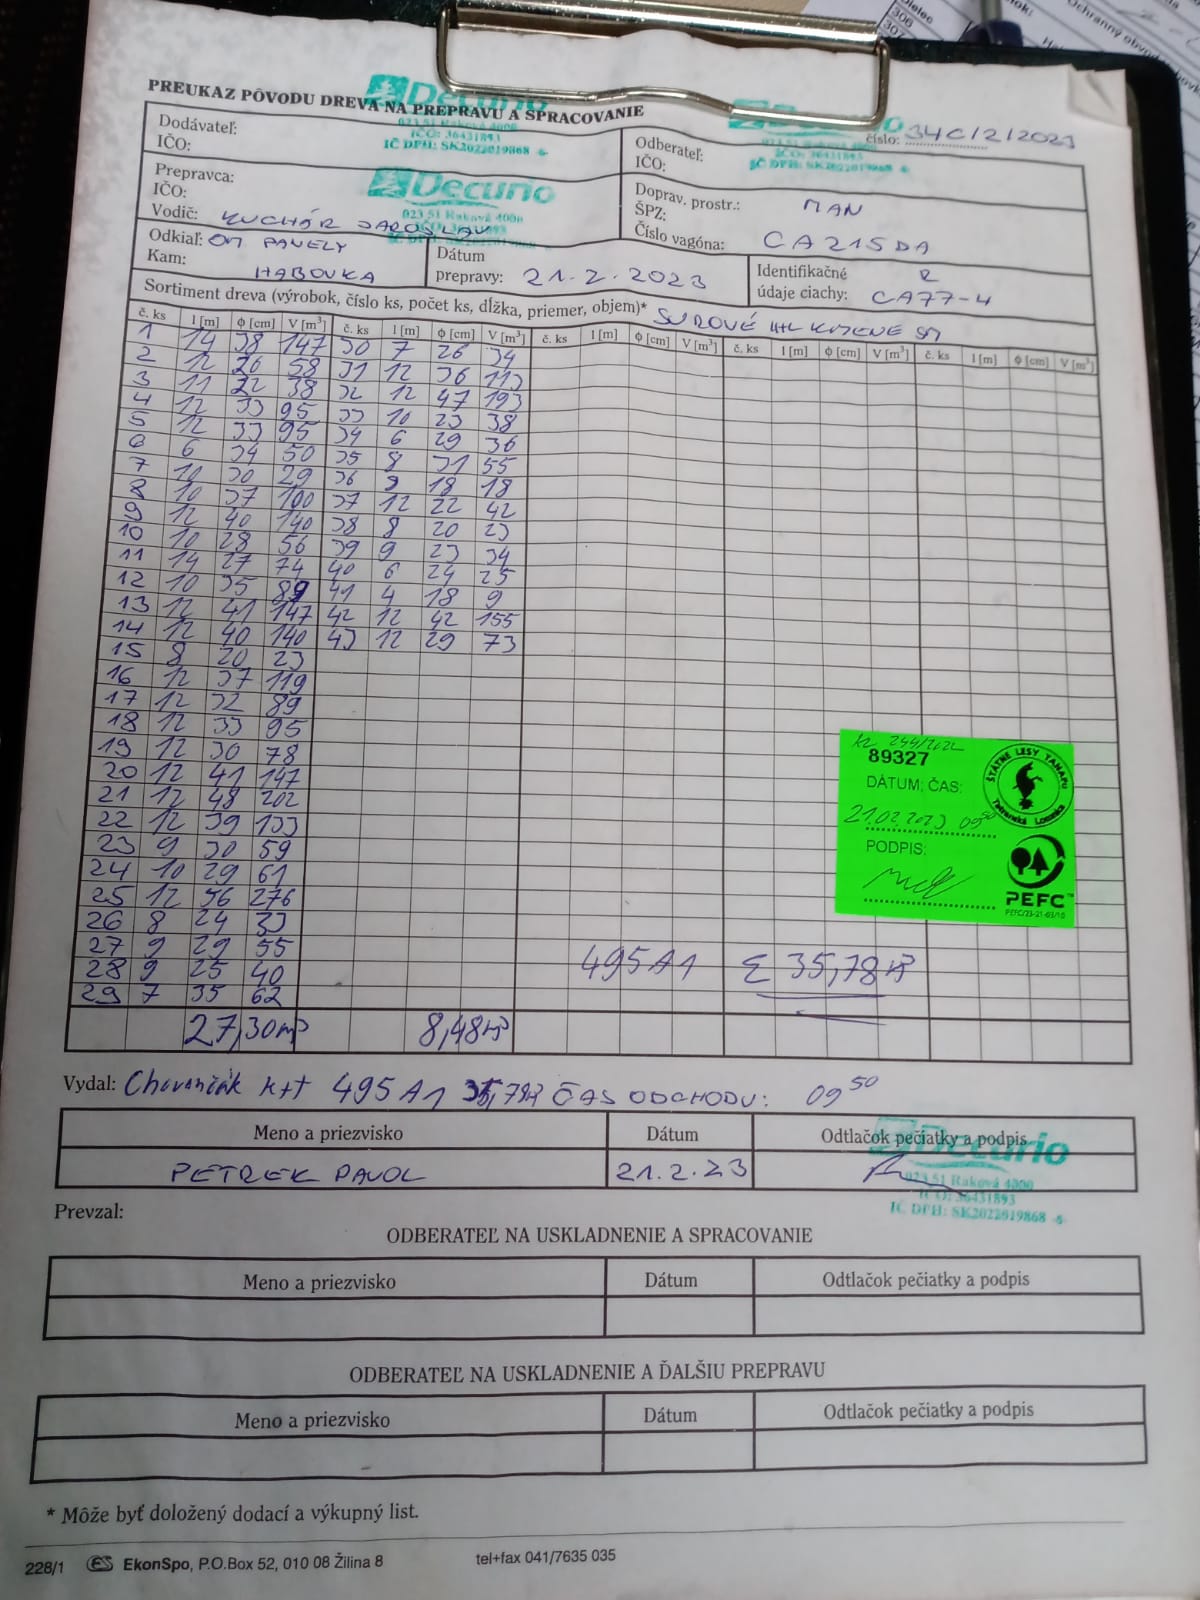 PREUKAZ PÔVODU DREVA NA PREPRAVU A SPRACOVANIE
číslo: 34C/2/2023
Dodávateľ:
IČO:
Decurio
023 51 Raková 4000
IČO: 36431893
IČ DPH: SK2022019868 -6-
Odberateľ:
IČO:
023 51 Raková 4000
IČO: 36431893
IČ DPH: SK2022019868
Prepravca:
IČO:
Vodič: KUCHÁR JAROSLAV
Decurio
023 51 Raková 4000
Doprav. prostr.: MAN
ŠPZ:
Číslo vagóna: CA215DA
Odkiaľ: OM PANELY
Kam: HABOVKA
Dátum
prepravy: 21.2.2023
Identifikačné R
údaje ciachy: CA77-4
Sortiment dreva (výrobok, číslo ks, počet ks, dĺžka, priemer, objem)* SUROVÉ KMENE SM
č. ks l [m] ϕ [cm] V [m³] č. ks l [m] ϕ [cm] V [m³] č. ks l [m] ϕ [cm] V [m³] č. ks l [m] ϕ [cm] V [m³] č. ks l [m] ϕ [cm] V [m³]
1 14 38 147 30 7 26 34
2 12 26 58 31 12 36 113
3 11 22 38 32 12 47 193
4 12 33 95 33 10 23 38
5 12 33 95 34 6 29 36
6 6 34 50 35 8 31 55
7 10 30 29 36 9 18 18
8 10 37 100 37 12 22 42
9 12 40 140 38 8 20 23
10 10 28 56 39 9 23 34
11 14 27 74 40 6 24 25
12 10 35 89 41 4 18 9
13 12 41 147 42 12 42 155
14 12 40 140 43 12 29 73
15 8 20 23
16 12 37 119
17 12 32 89
18 12 33 95
19 12 30 78
20 12 41 147
21 12 48 202
22 12 39 133
23 9 30 59
24 10 29 61
25 12 56 276
26 8 24 33
27 9 29 55
28 9 25 40
29 7 35 62
495A1 Σ 35,78 m³
27,30m³ 8,48m³
244/2022
89327
DÁTUM, ČAS:
21.02.2023 09⁵⁰
PODPIS:
ŠTÁTNE LESY TANAPU
Tatranská Lomnica
PEFC™
PEFC/23-21-03/10
Vydal: Chovančák 495A1 35,78 ČAS ODCHODU: 09⁵⁰
Meno a priezvisko Dátum Odtlačok pečiatky a podpis
PETREK PAVOL 21.2.23
Decurio
023 51 Raková 4000
IČO: 36431893
IČ DPH: SK2022019868 -6-
Prevzal:
ODBERATEĽ NA USKLADNENIE A SPRACOVANIE
Meno a priezvisko Dátum Odtlačok pečiatky a podpis
ODBERATEĽ NA USKLADNENIE A ĎALŠIU PREPRAVU
Meno a priezvisko Dátum Odtlačok pečiatky a podpis
* Môže byť doložený dodací a výkupný list.
228/1 ES EkonSpo, P.O.Box 52, 010 08 Žilina 8 tel+fax 041/7635 035